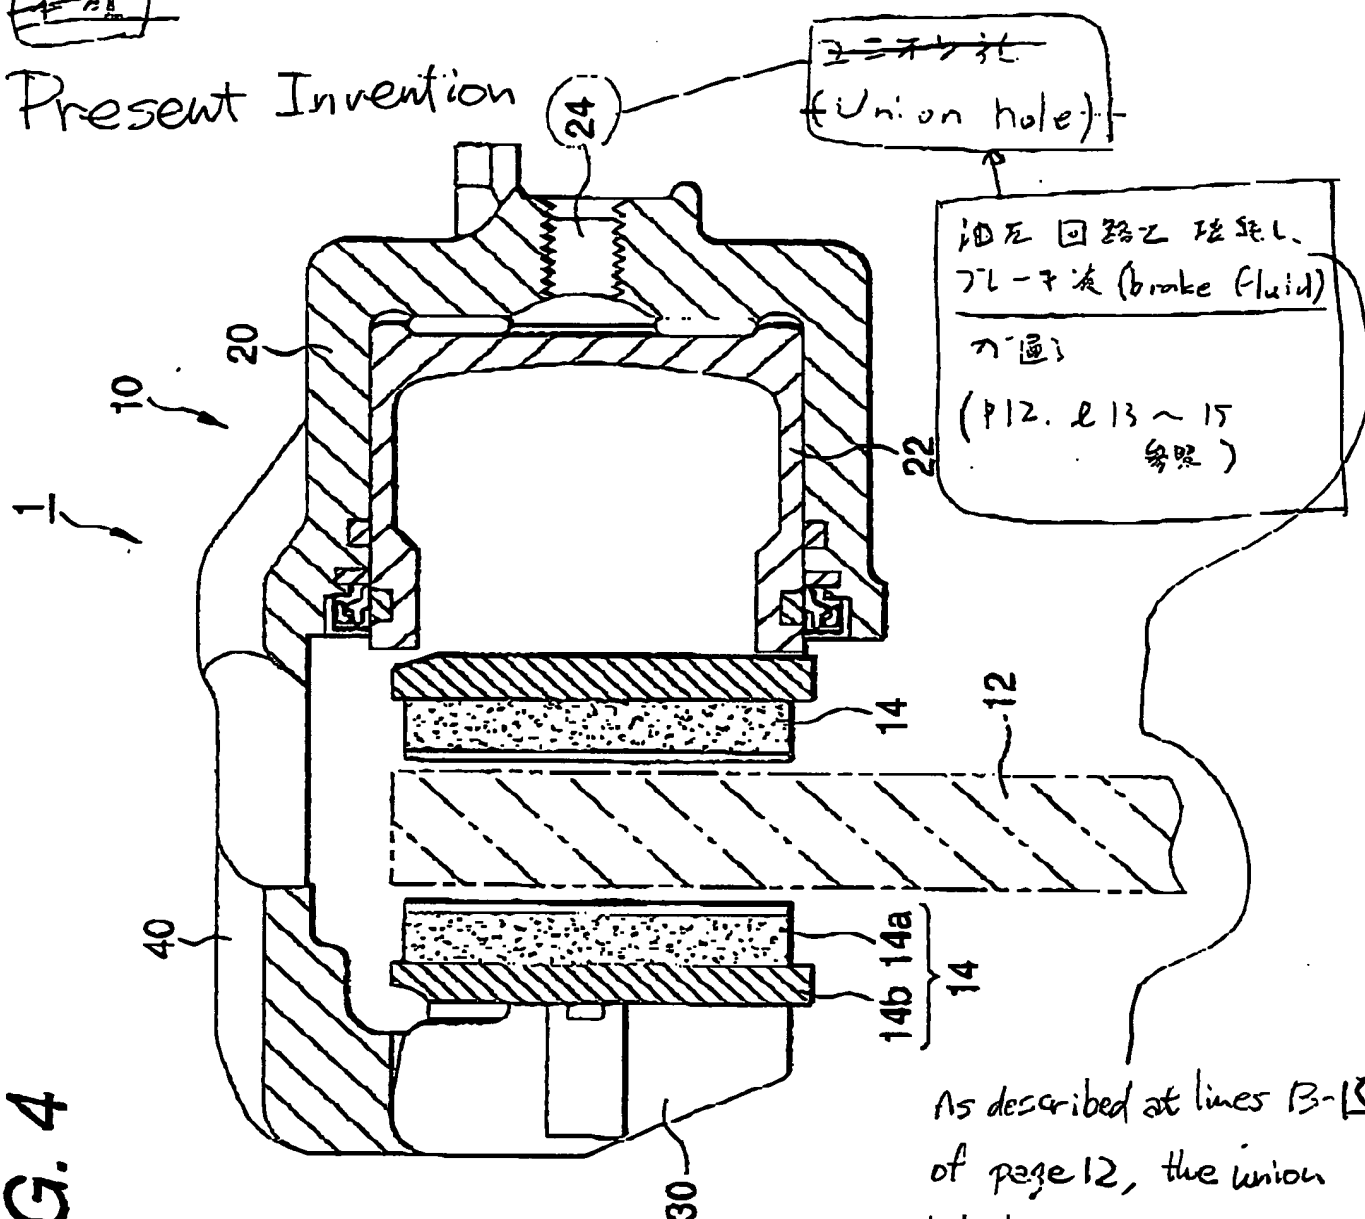 Present Invention
ユニオン孔
(Union hole)
油圧回路と接続し、
ブレーキ液 (brake fluid)
が通る
(P12. l 13 ~ 15
参照)
24
20
10
1
22
14
12
40
14a
14b
14
30
G. 4
As described at lines 13-15
of page 12, the union